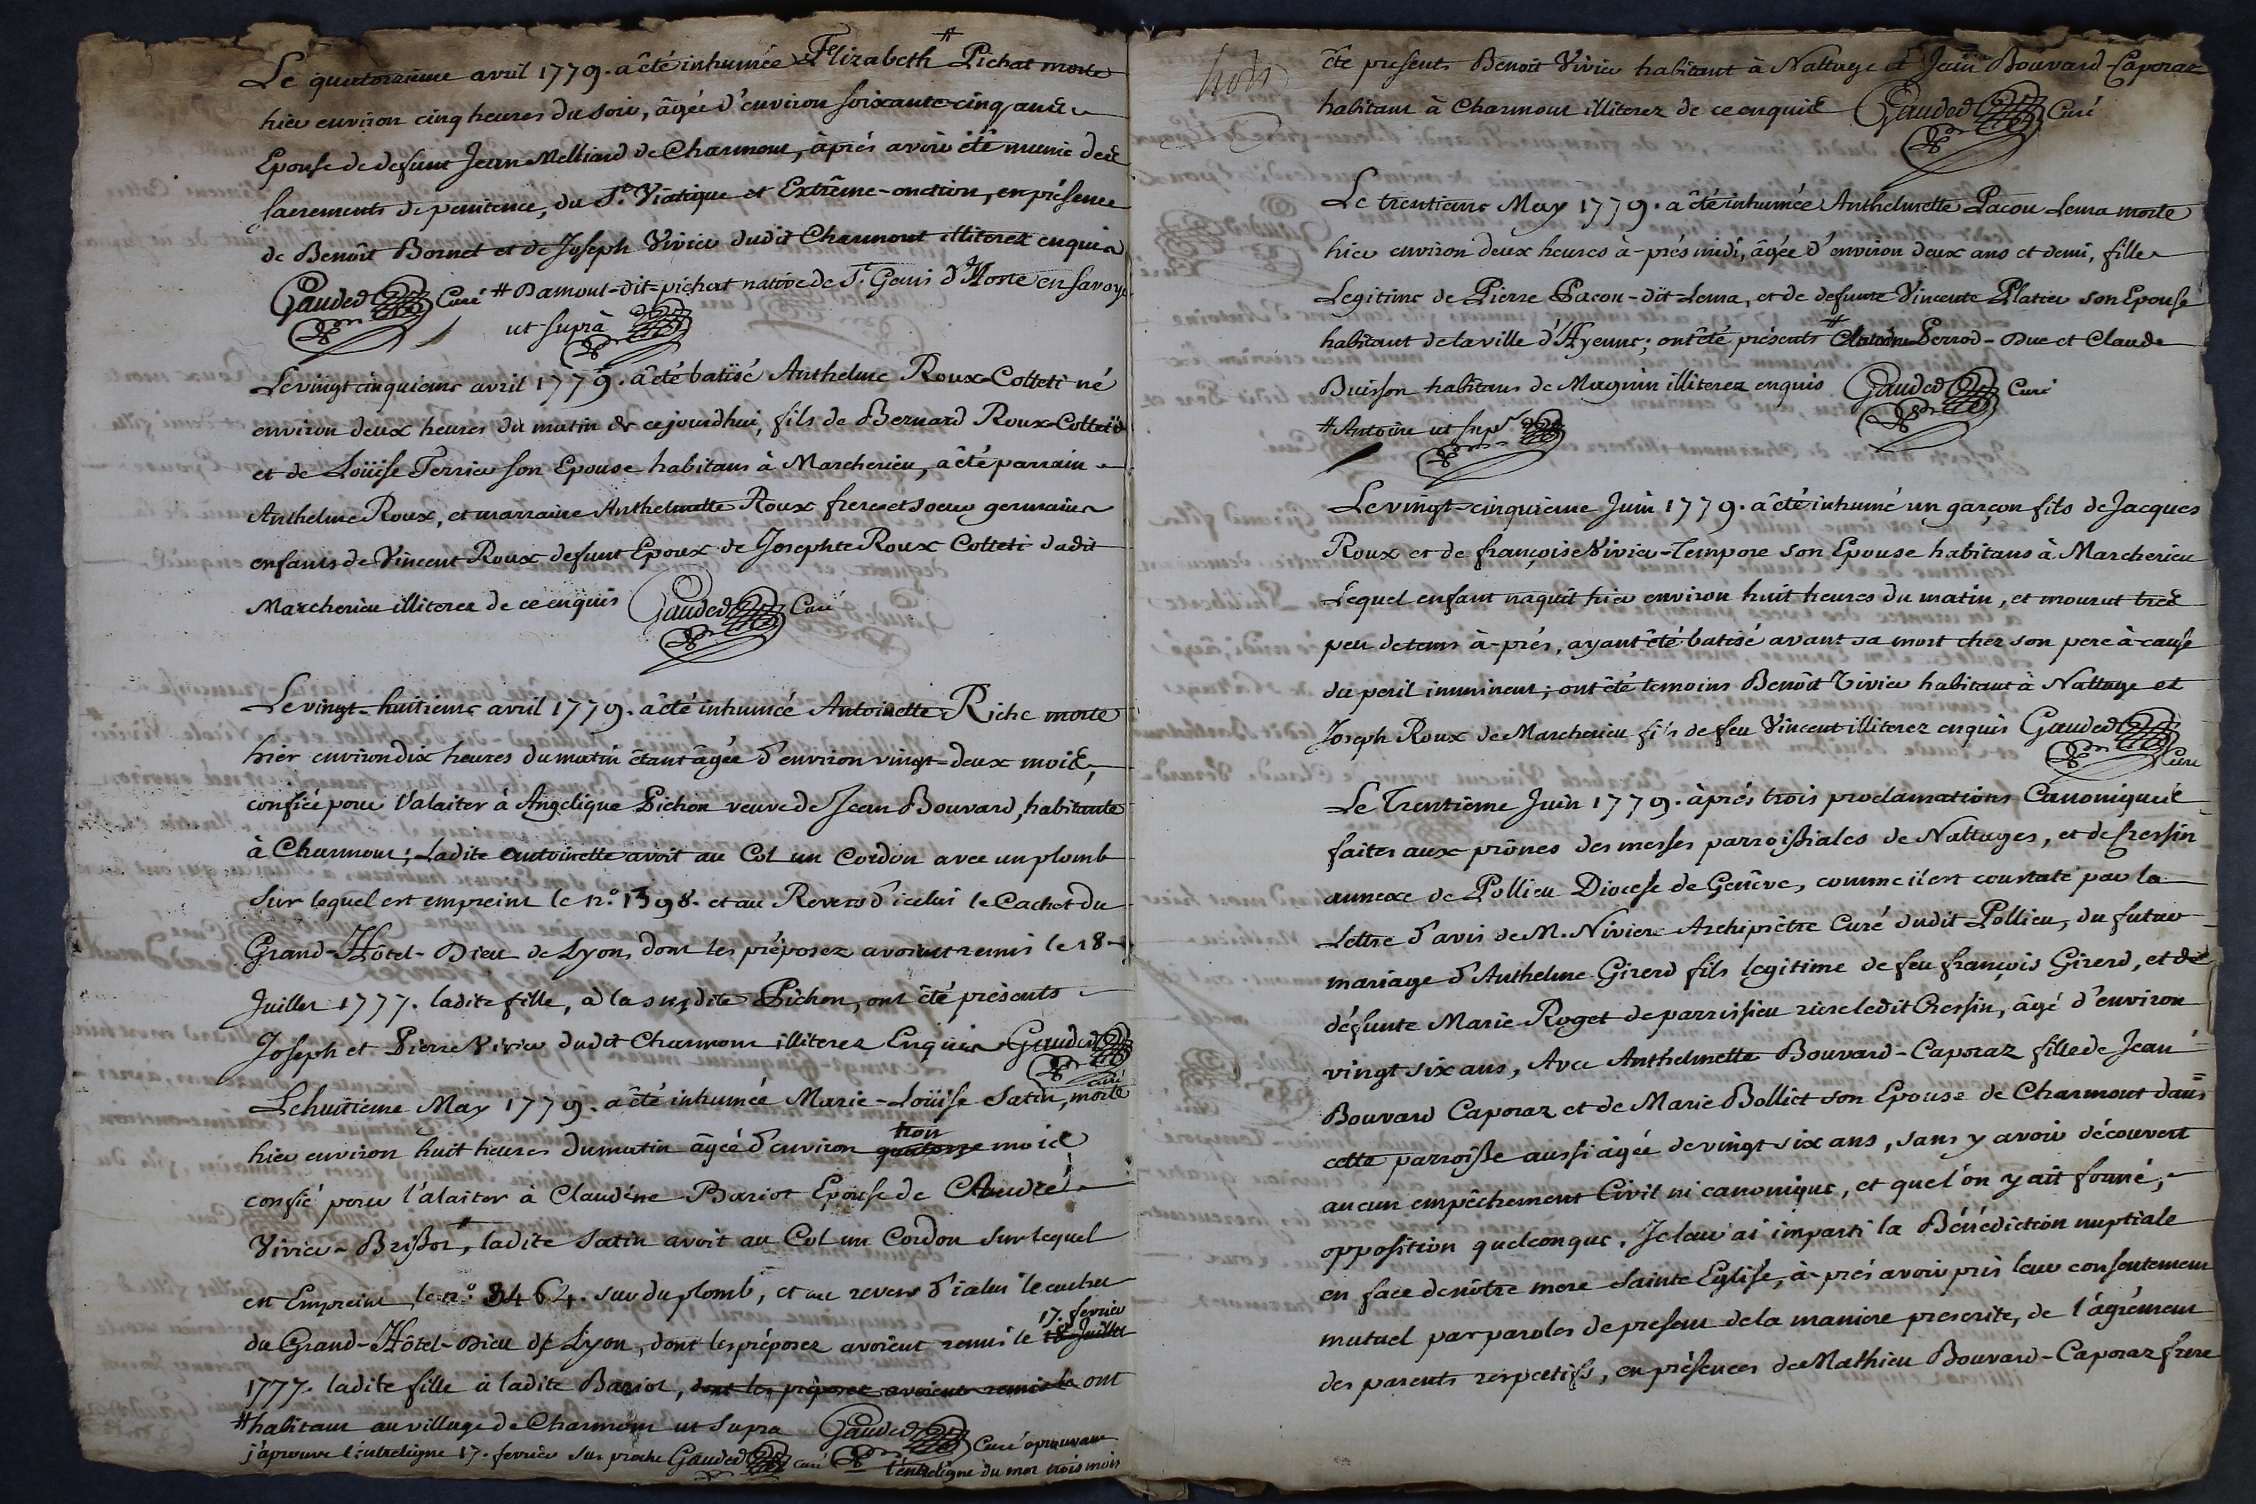 Le quatorzieme avril 1779. a été inhumée Elizabeth # Pichat morte
hier environ cinq heures du soir, âgée d'environ soixante-cinq ans
Epouse de defunt Jean Melliand de Charmont, après avoir été munie des
sacrements de penitence, du St. Viatique et Extrême-onction, en présence
de Benoît Bornet et de Joseph Vivier dudit Charmont illiterez enquis
Gauded Curé # Damout-dit-pichat native de St. Genis d'Aoste en Savoye
ut suprà
Le vingt cinquieme avril 1779. a été batisé Anthelme Roux-Colleti né
environ deux heures du matin de cejourdhui, fils de Bernard Roux-Colleti
et de Loüise Terrier son Epouse habitans à Marcherieu, a été parrain
Anthelme Roux, et marraine Anthelmette Roux frere et soeur germains
enfants de Vincent Roux defunt Epoux de Josephte Roux Colleti dudit
Marcherieu illiterez de ce enquis Gauded Curé
Le vingt-huitieme avril 1779. a été inhumée Antoinette Riche morte
hier environ dix heures du matin étant âgée d'environ vingt-deux mois,
confiée pour l'alaiter à Angelique Pichon veuve de Jean Bouvard, habitante
à Charmont; Ladite Antoinette avoit au Col un Cordon avec un plomb
sur lequel est empreint le n.º 1398. et au Revers d'icelui le Cachet du
Grand-Hôtel-Dieu de Lyon, dont les préposez avoient remis le 18
Juillet 1777. ladite fille, à la susdite Pichon, ont été présents
Joseph et Pierre Vivier dudit Charmont illiterez Enquis Gauded
curé
Le huitieme May 1779. a été inhumée Marie-Loüise Satin, morte
trois
hier environ huit heures du matin âgée d'environ quatorze mois
confié pour l'alaiter à Claudéne Bariot Epouse de Claudé
Vivier-Brissot, # ladite Satin avoit au Col un Cordon sur lequel
est Empreint le n.º 3462. sur du plomb, et au revers d'icelui le cachet
17. fevrier
du Grand-Hôtel-Dieu de Lyon, dont les préposez avoient remis le 18 Juillet
1777. ladite fille à ladite Bariot, dont les préposez avoient remis la ont
# habitant au village de Charmont ut supra Gauded Curé aprouvant
l'entreligne du mot trois mois
j'aprouve l'entreligne 17. fevrier sus proche Gauded curé
été presents Benoit Vivier habitant à Nattage et Jean Bouvard-Caporaz
habitant à Charmont illiterez de ce enquis Gauded Curé
Le trentieme May 1779. a été inhumée Anthelmette Pacou Lema morte
hier environ deux heures à-près midi, âgée d'environ deux ans et demi, fille
Legitime de Pierre Pacou-dit-Lema, et de defunte Vincente Platier son Epouse
habitant de la ville d'Ayenne; ont été présents # Claude Perrod-Duc et Claude
Buisson habitans de Magnin illiterez enquis Gauded Curé
# Antoine ut supr
Le vingt-cinquieme Juin 1779. a été inhumé un garçon fils de Jacques
Roux et de françoise Vivier-Tempore son Epouse habitans à Marcherieu
Lequel enfant naquit hier environ huit heures du matin, et mourut tres
peu de tems à-près, ayant été batisé avant sa mort chez son pere à cause
du peril imminent; ont été temoins Benoît Vivier habitant à Nattage et
Joseph Roux de Marcherieu fils de feu Vincent illiterez enquis Gauded
Curé
Le Trentieme Juin 1779. àprès trois proclamations Canoniques
faites aux prônes des messes parroissiales de Nattages, et de Cressin
annexe de Pollieu Diocese de Genêve, comme il est constaté par la
Lettre d'avis de M. Niviere Archiprêtre Curé dudit Pollieu, du futur
mariage d'Anthelme Girerd fils legitime de feu françois Girerd, et de
défunte Marie Roget de parrissieu riere ledit Cressin, âgé d'environ
vingt six ans, Avec Anthelmette Bouvard-Caporaz fille de Jean
Bouvard Caporaz et de Marie Bolliet son Epouse de Charmont dans
cette parroisse aussi âgée de vingt six ans, sans y avoir découvert
aucun empêchement Civil ni canonique, et quel'on y ait formé,
opposition quelconque, Je leur ai imparti la Bénédiction nuptiale
en face de nôtre mere Sainte Eglise, à-près avoir pris leur consentement
mutuel par paroles de present de la maniere prescrite, de l'agrément
des parents respectifs, en présences de Mathieu Bouvard-Caporaz frere